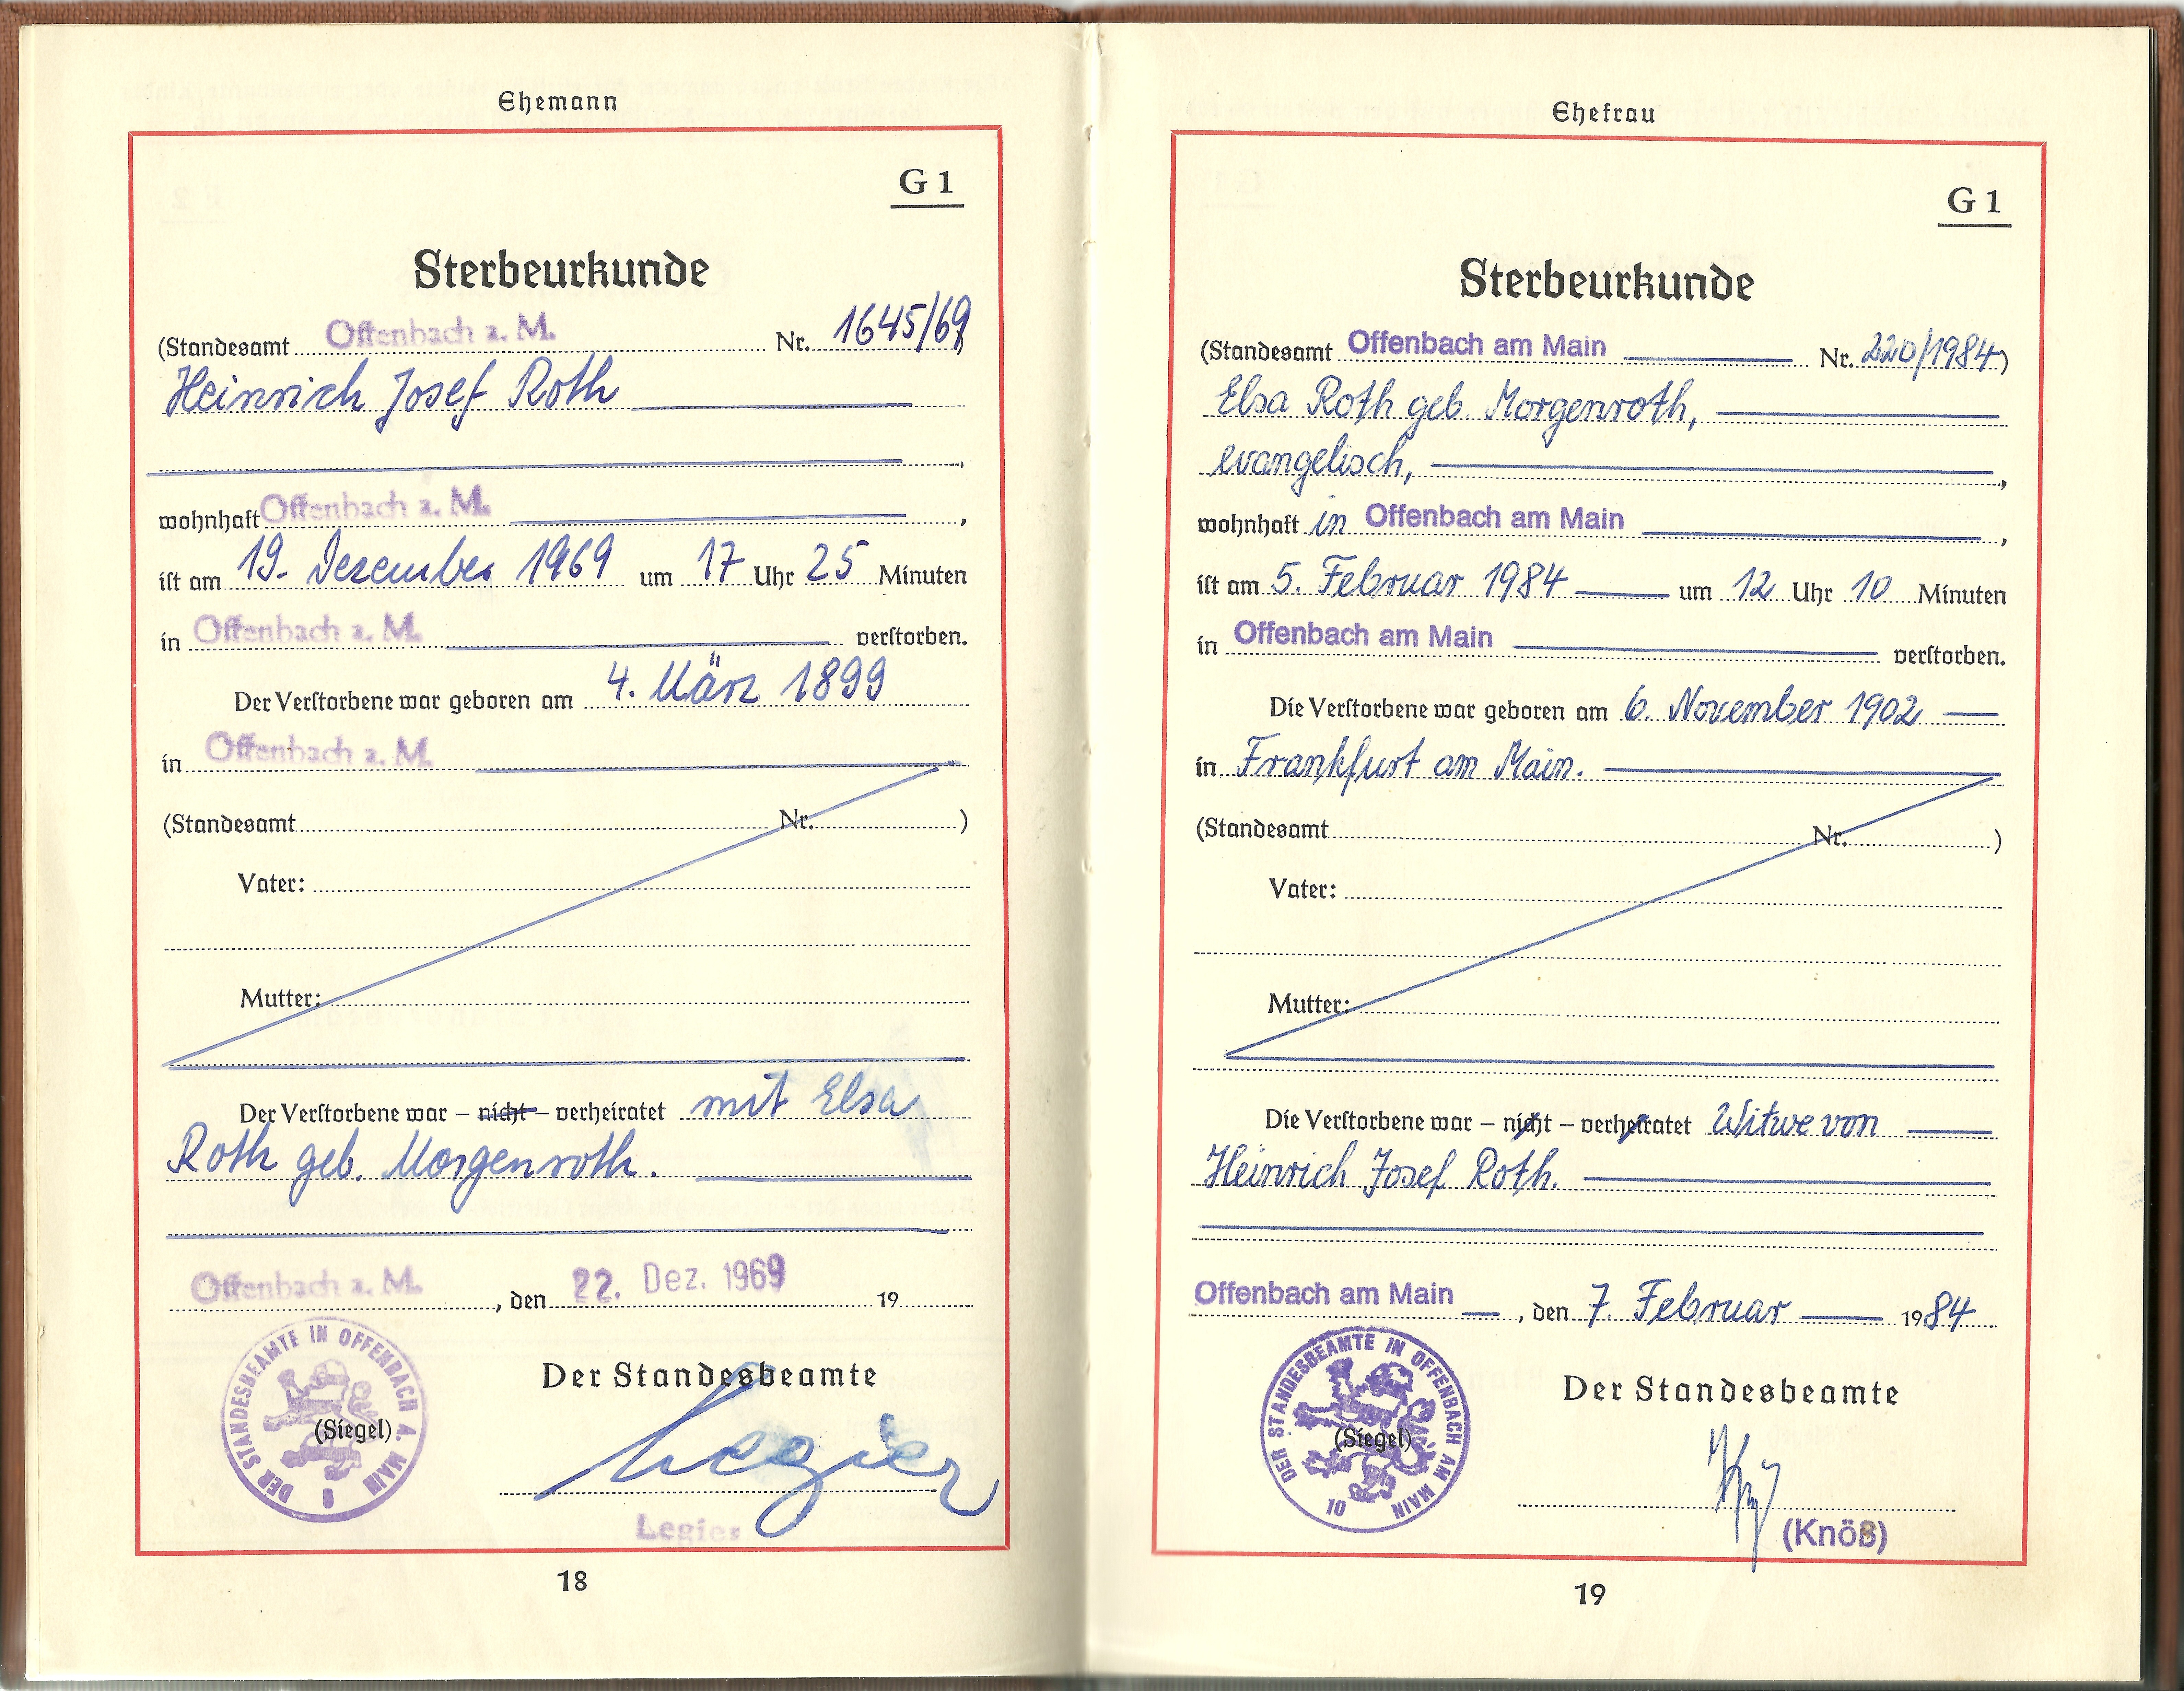 Ehemann
G 1
Sterbeurkunde
(Standesamt Offenbach a. M. Nr. 1645/69)
Heinrich Josef Roth
,
wohnhaft Offenbach a. M. ,
ist am 19. Dezember 1969 um 17 Uhr 25 Minuten
in Offenbach a. M. verstorben.
Der Verstorbene war geboren am 4. März 1899
in Offenbach a. M.
(Standesamt Nr. )
Vater:
Mutter:
Der Verstorbene war – nicht – verheiratet mit Elsa
Roth geb. Morgenroth.
Offenbach a. M. , den 22. Dez. 1969 19
DER STANDESBEAMTE IN OFFENBACH A. MAIN
(Siegel)
Der Standesbeamte
Legier
Legier
18
Ehefrau
G 1
Sterbeurkunde
(Standesamt Offenbach am Main Nr. 220/1984)
Elsa Roth geb. Morgenroth,
evangelisch, ,
wohnhaft in Offenbach am Main ,
ist am 5. Februar 1984 um 12 Uhr 10 Minuten
in Offenbach am Main verstorben.
Die Verstorbene war geboren am 6. November 1902
in Frankfurt am Main.
(Standesamt Nr. )
Vater:
Mutter:
Die Verstorbene war – nicht – verheiratet Witwe von
Heinrich Josef Roth.
Offenbach am Main , den 7. Februar 1984
DER STANDESBEAMTE IN OFFENBACH AM MAIN
10
(Siegel)
Der Standesbeamte
(Knöß)
19